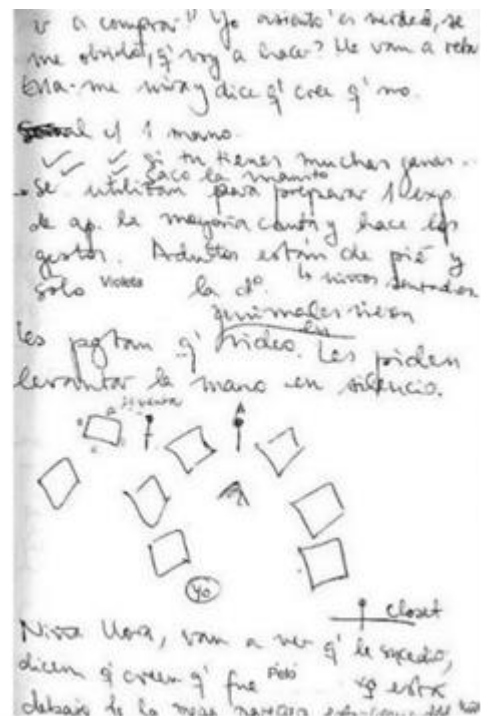 a comprar" Yo asiento es verdad, se
me olvidó, q' voy a hacer? Me van a retar
Ella me mira y dice q' cree q' no.
c/ 1 mano.
si tu tienes muchas ganas..
saco la manito
Se utilizan para preparar 1 exp.
de ap. la mayoría canta y hace los
gestos. Adultos están de pié y
solo Violeta la
lo niños sentados
animales vieron
Les pgtan q' en video. Les piden
levantar la mano en silencio.
A
Yo
closet
Niña llora, van a ver q' le sucedió,
dicen q' creen q' fue Polo xq está
debajo de la mesa